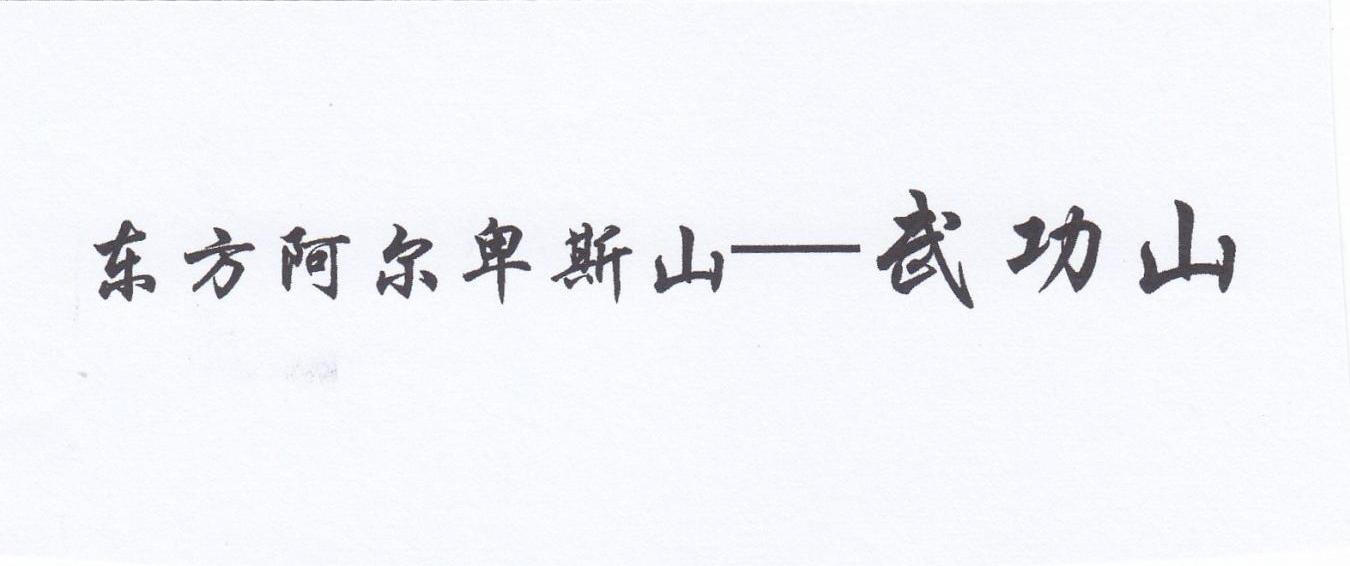 东方阿尔卑斯山——武功山